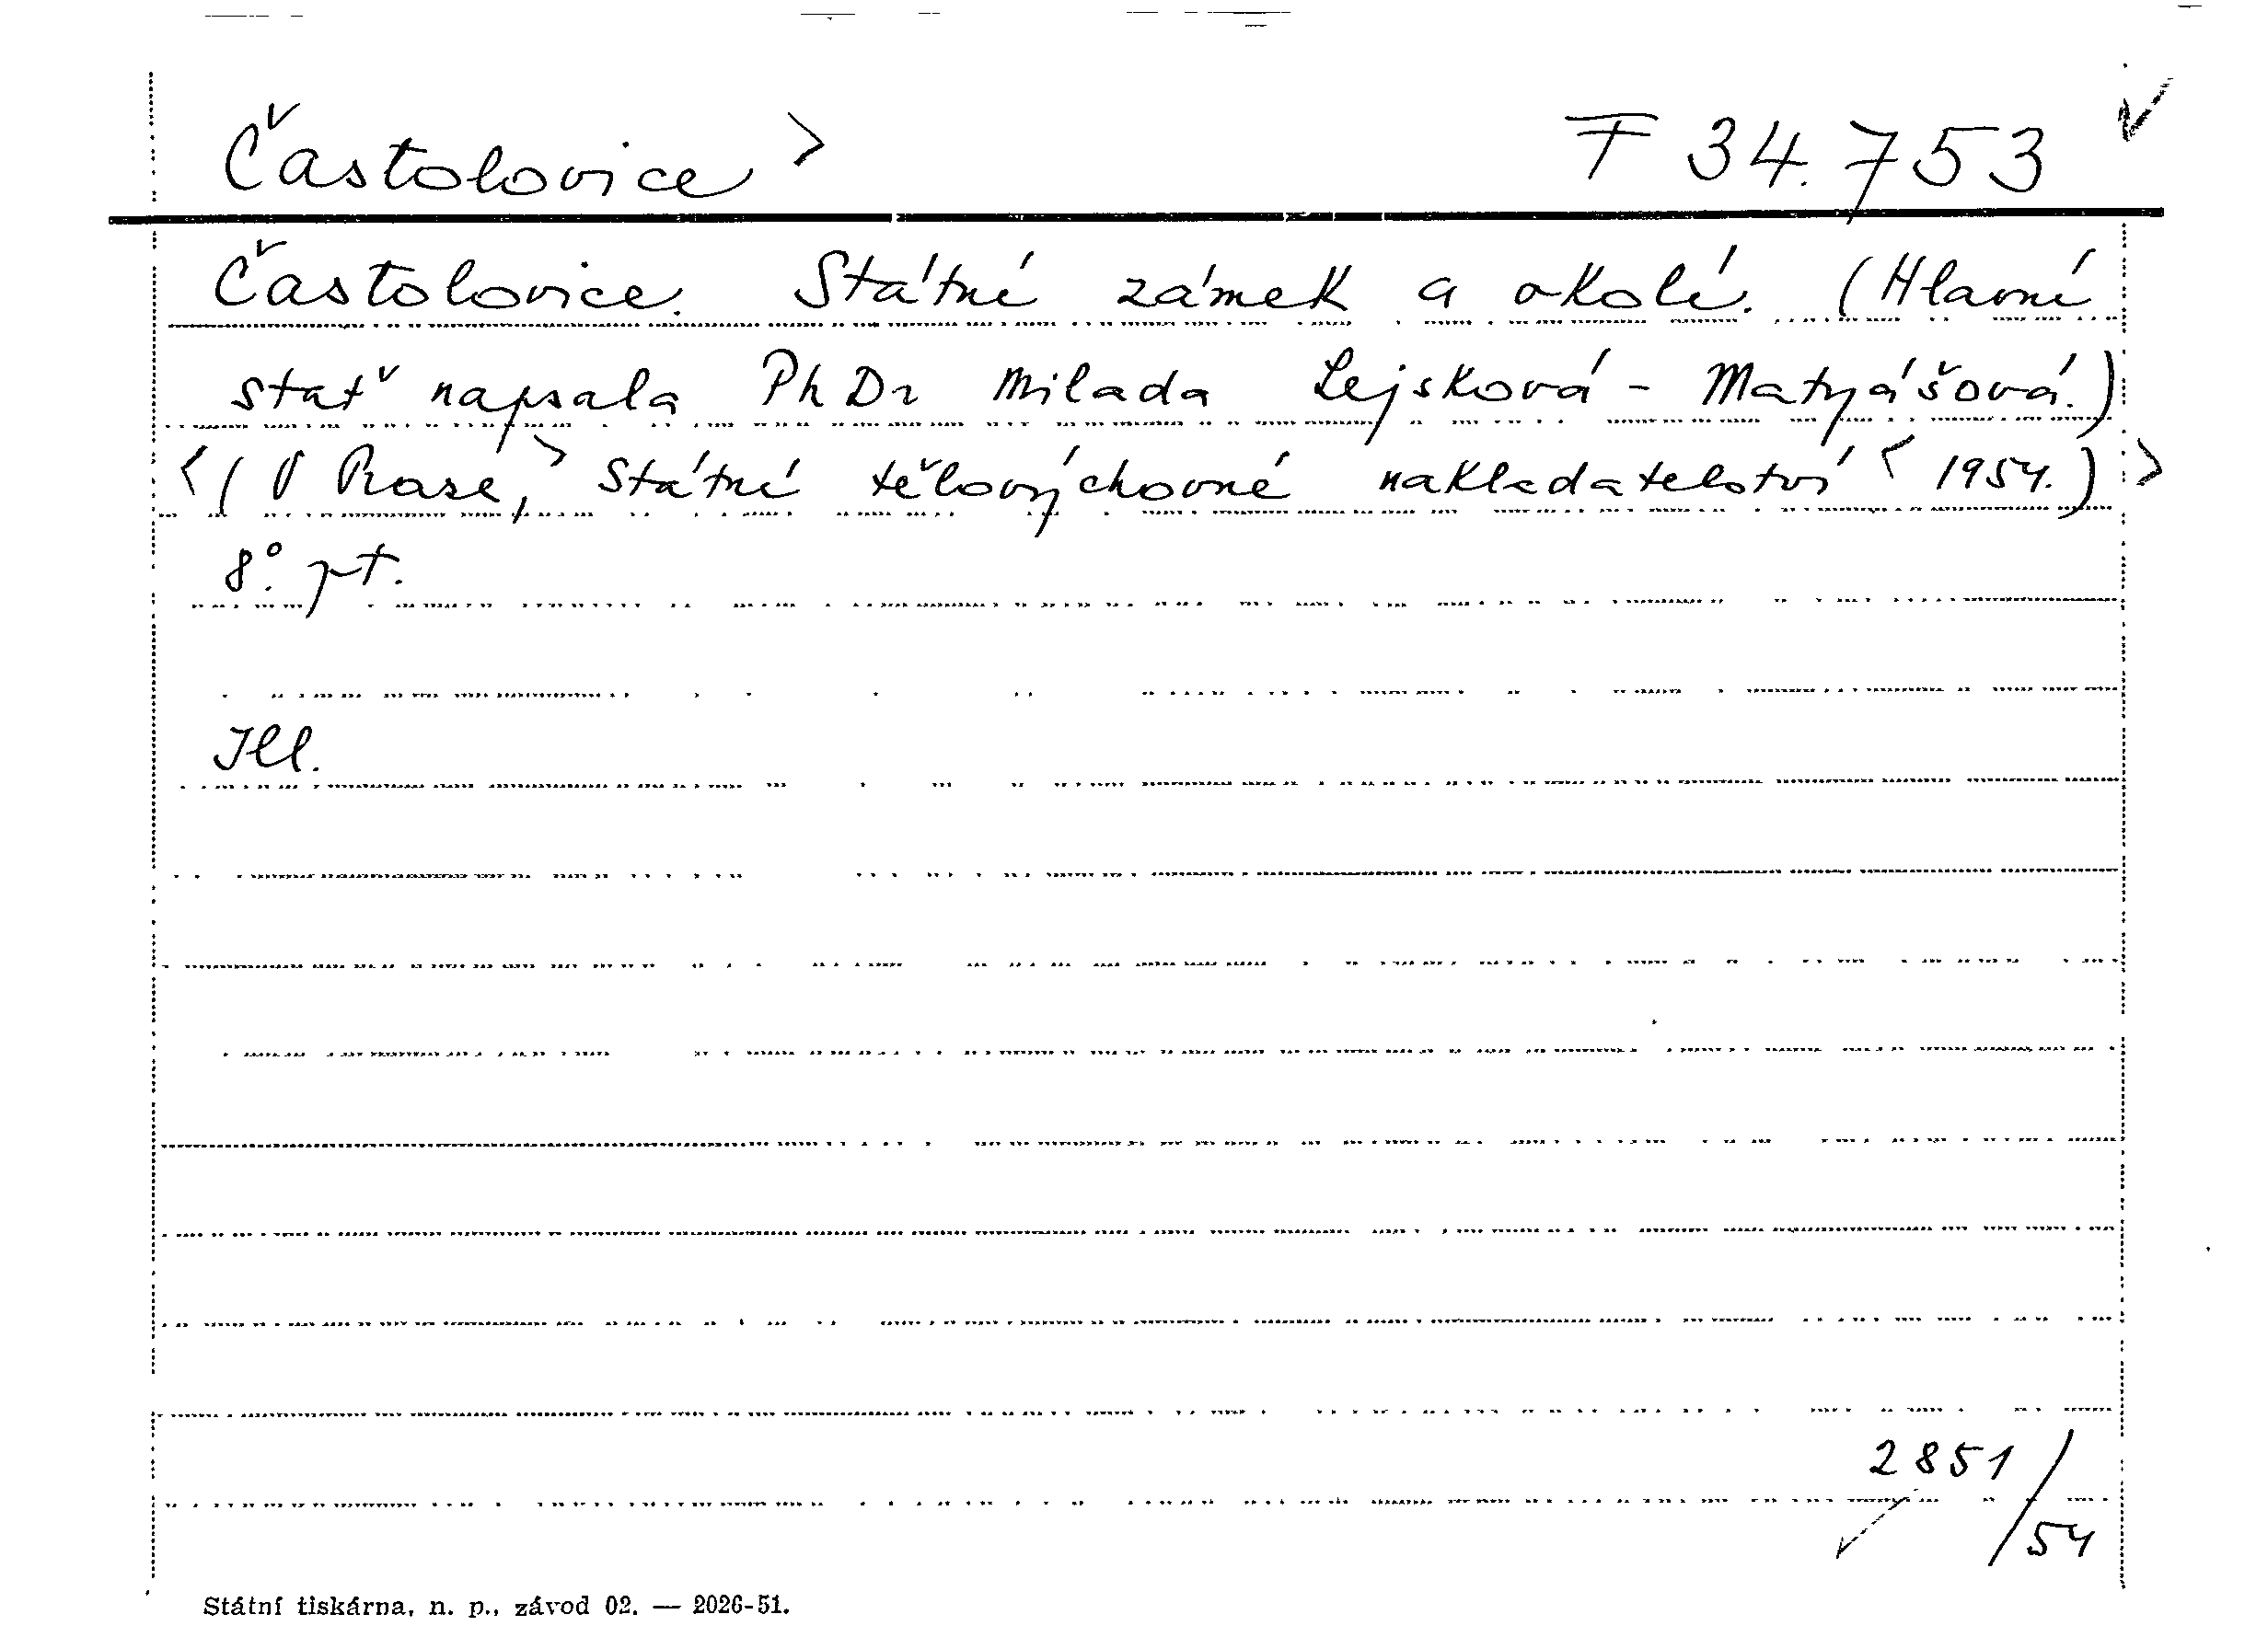 Častolovice > F 34.753 ✓
Častolovice. Státní zámek a okolí. (Hlavní
stať napsala PhDr Milada Lejsková-Matyášová.)
<(V Praze,> Státní tělovýchovné nakladatelství <1954.)>
8°. pt.
Ill.
2851/
54
Státní tiskárna, n. p., závod 02. — 2026-51.